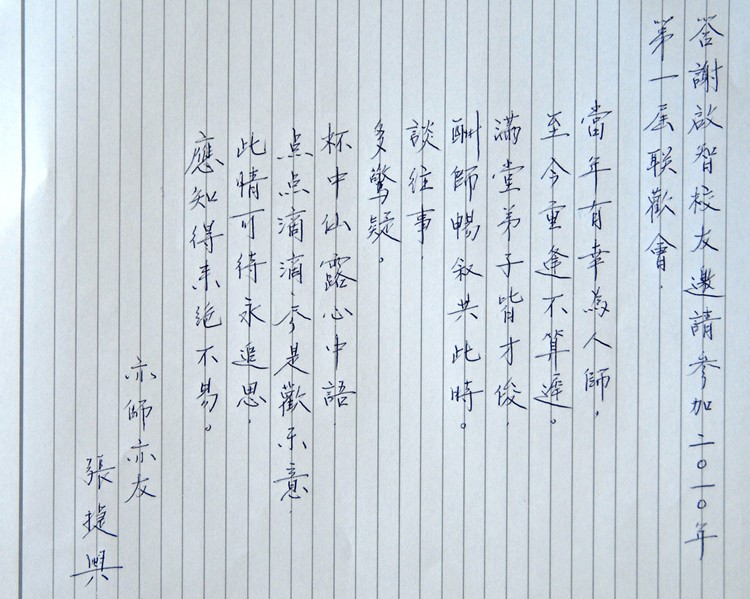 答謝啟智校友邀請參加二〇一〇年
第一屆联歡會.
當年有幸為人師,
至今重逢不算遲。
滿堂弟子皆才俊,
酬師暢敘共此時。
談往事,
多驚疑。
杯中仙露心中語,
点点滴滴多是歡乐意.
此情可待永追思,
應知得来绝不易。
亦師亦友
張捷興